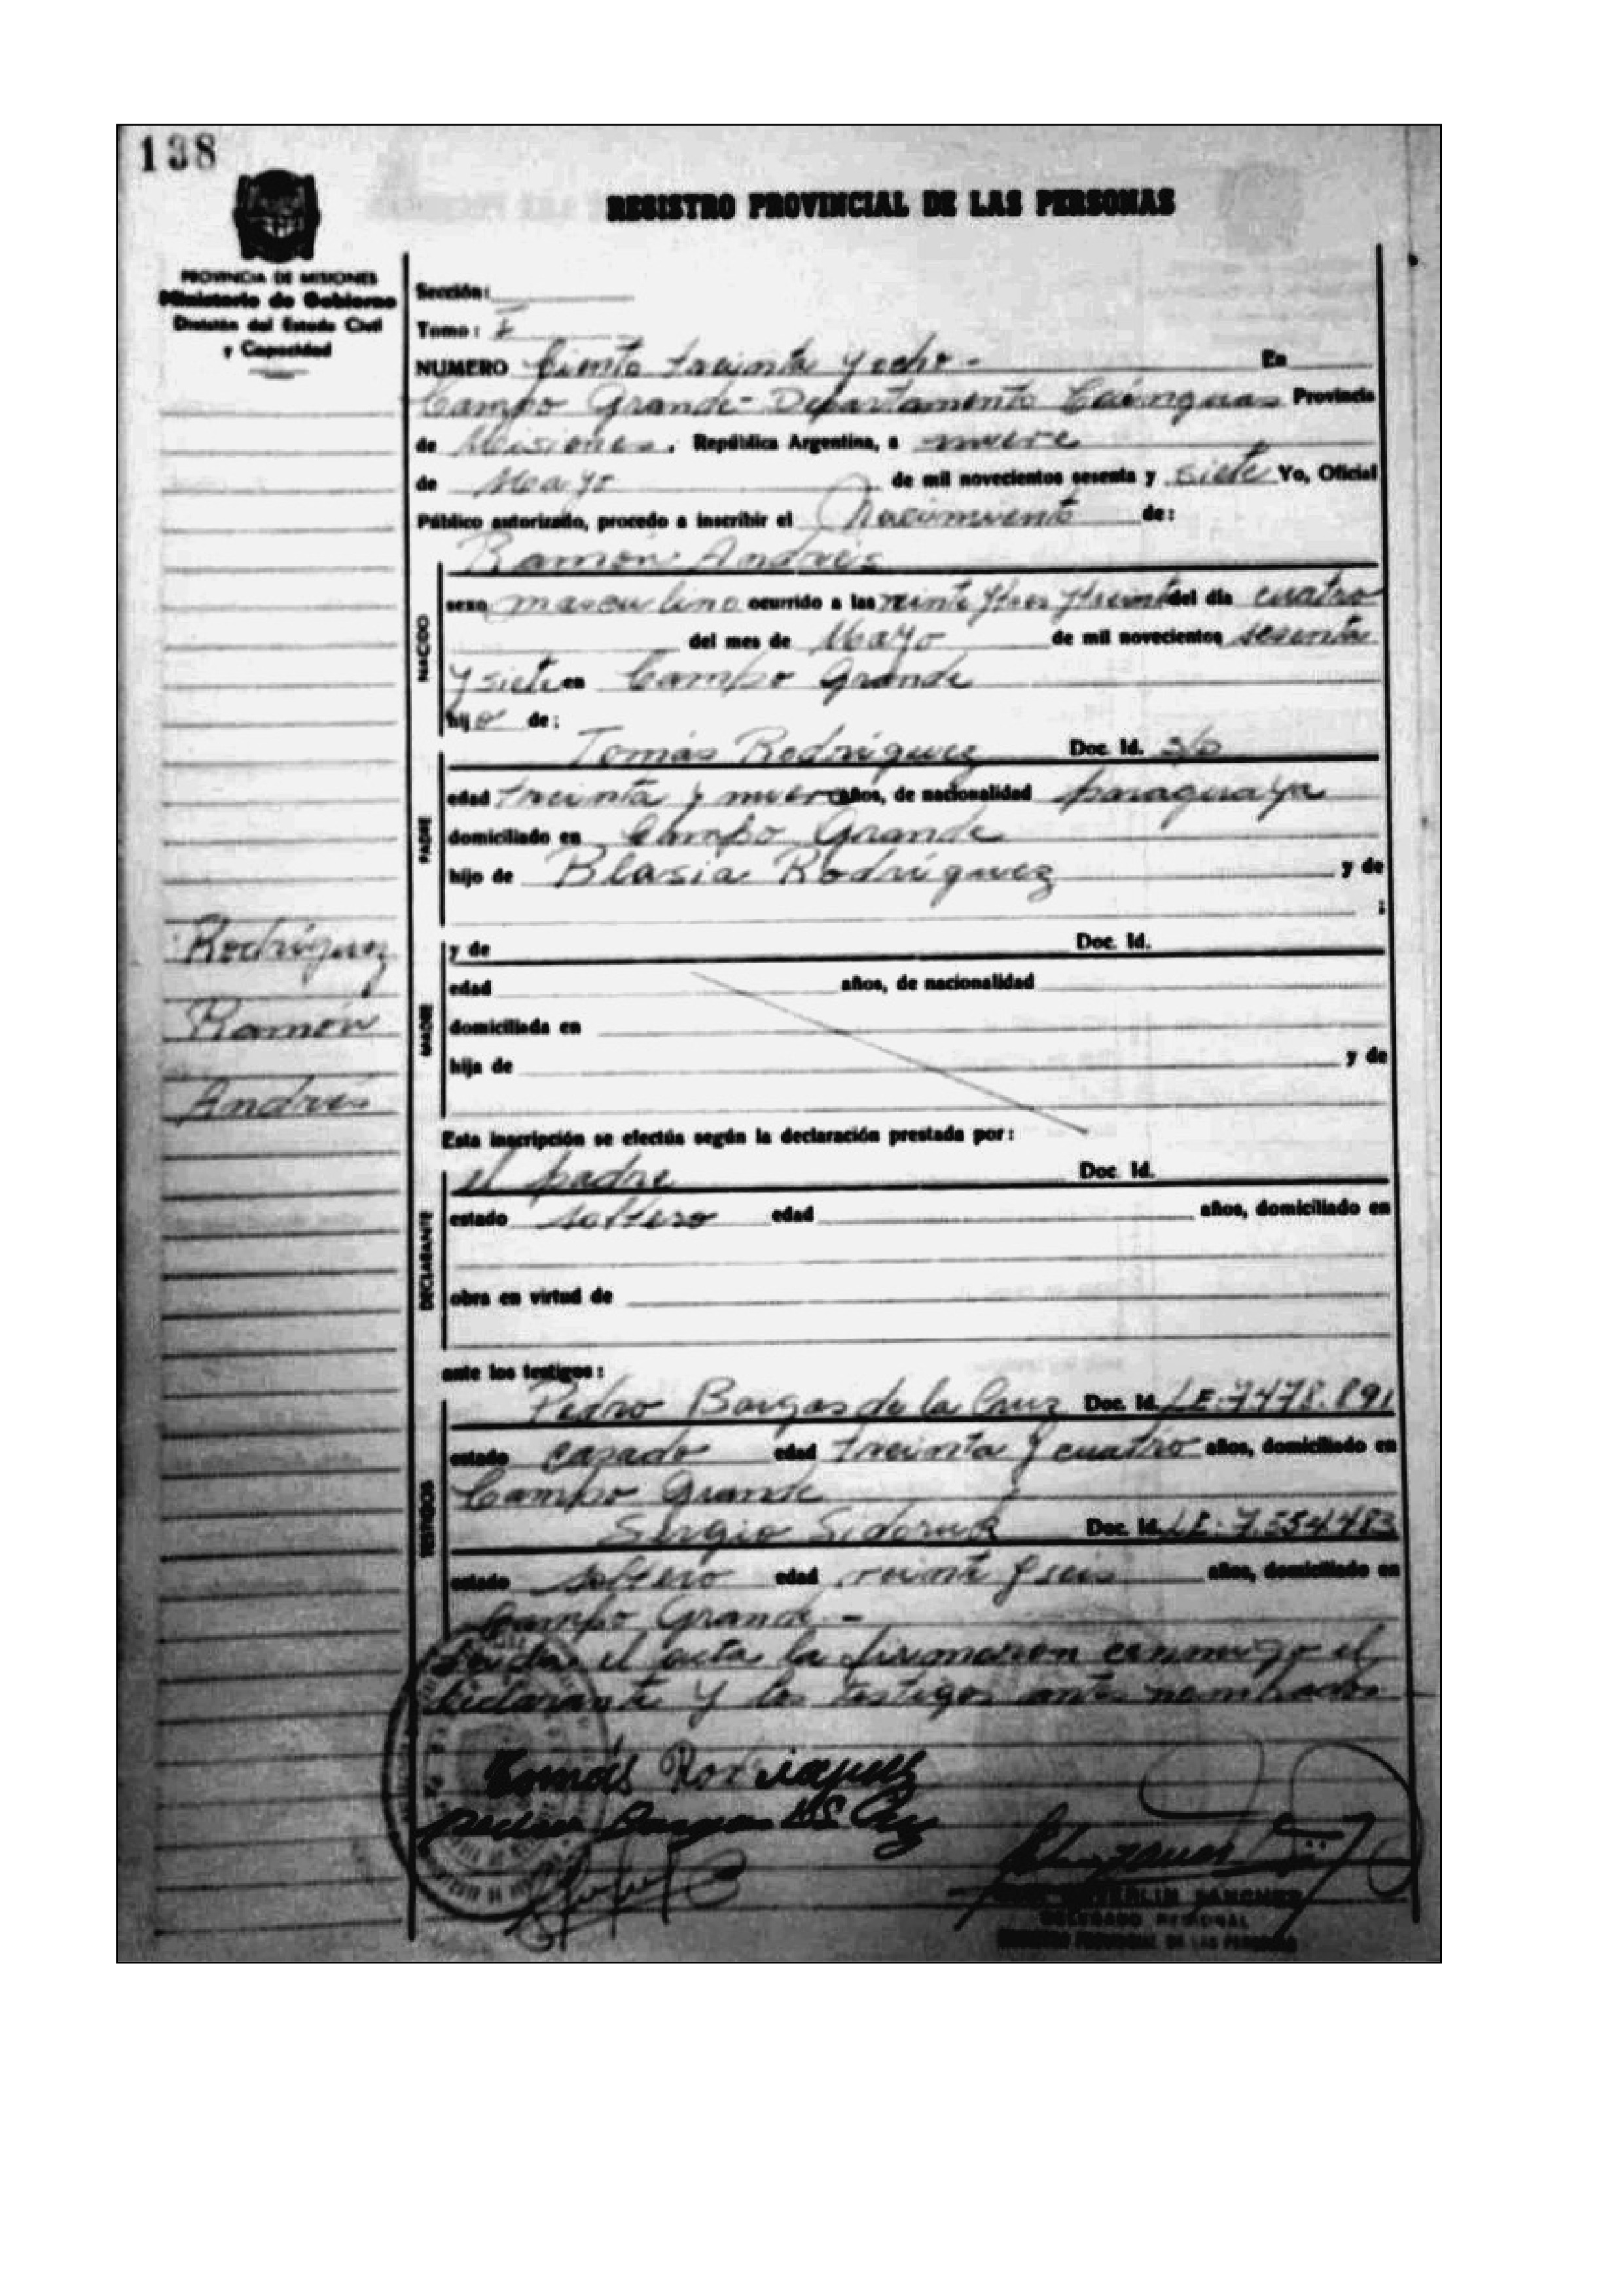 138
REGISTRO PROVINCIAL DE LAS PERSONAS
PROVINCIA DE MISIONES
Ministerio de Gobierno
División del Estado Civil
y Capacidad
Sección:
Tomo: I
NUMERO Ciento treinta y ocho - En
Campo Grande - Departamento Cainguas Provincia
de Misiones. República Argentina, a nueve
de Mayo de mil novecientos sesenta y siete Yo, Oficial
Público autorizado, procedo a inscribir el Nacimiento de:
Ramón Andrés
NACIDO
sexo masculino ocurrido a las veinte y tres y treinta del día cuatro
del mes de Mayo de mil novecientos sesenta
y siete en Campo Grande
hijo de:
Tomás Rodríguez Doc. Id. s/d
PADRE
edad treinta y nueve años, de nacionalidad paraguaya
domiciliado en Campo Grande
hijo de Blasia Rodríguez y de
;
Rodríguez
Ramón
Andrés
MADRE
y de Doc. Id.
edad años, de nacionalidad
domiciliada en
hija de y de
Esta inscripción se efectúa según la declaración prestada por:
el padre Doc. Id.
DECLARANTE
estado soltero edad años, domiciliado en
obra en virtud de
ante los testigos:
Pedro Bargas de la Cruz Doc. Id. LE: 7478.891
TESTIGOS
estado casado edad treinta y cuatro años, domiciliado en
Campo Grande
Sergio Sidoruk Doc. Id. LE: 7.554.483
estado soltero edad veinte y seis años, domiciliado en
Campo Grande. -
Leida el acta la firmaron conmigo el
declarante y los testigos antes nombrados
Tomás Rodriguez
SANCHEZ
DELEGADO REGIONAL
REGISTRO PROVINCIAL DE LAS PERSONAS